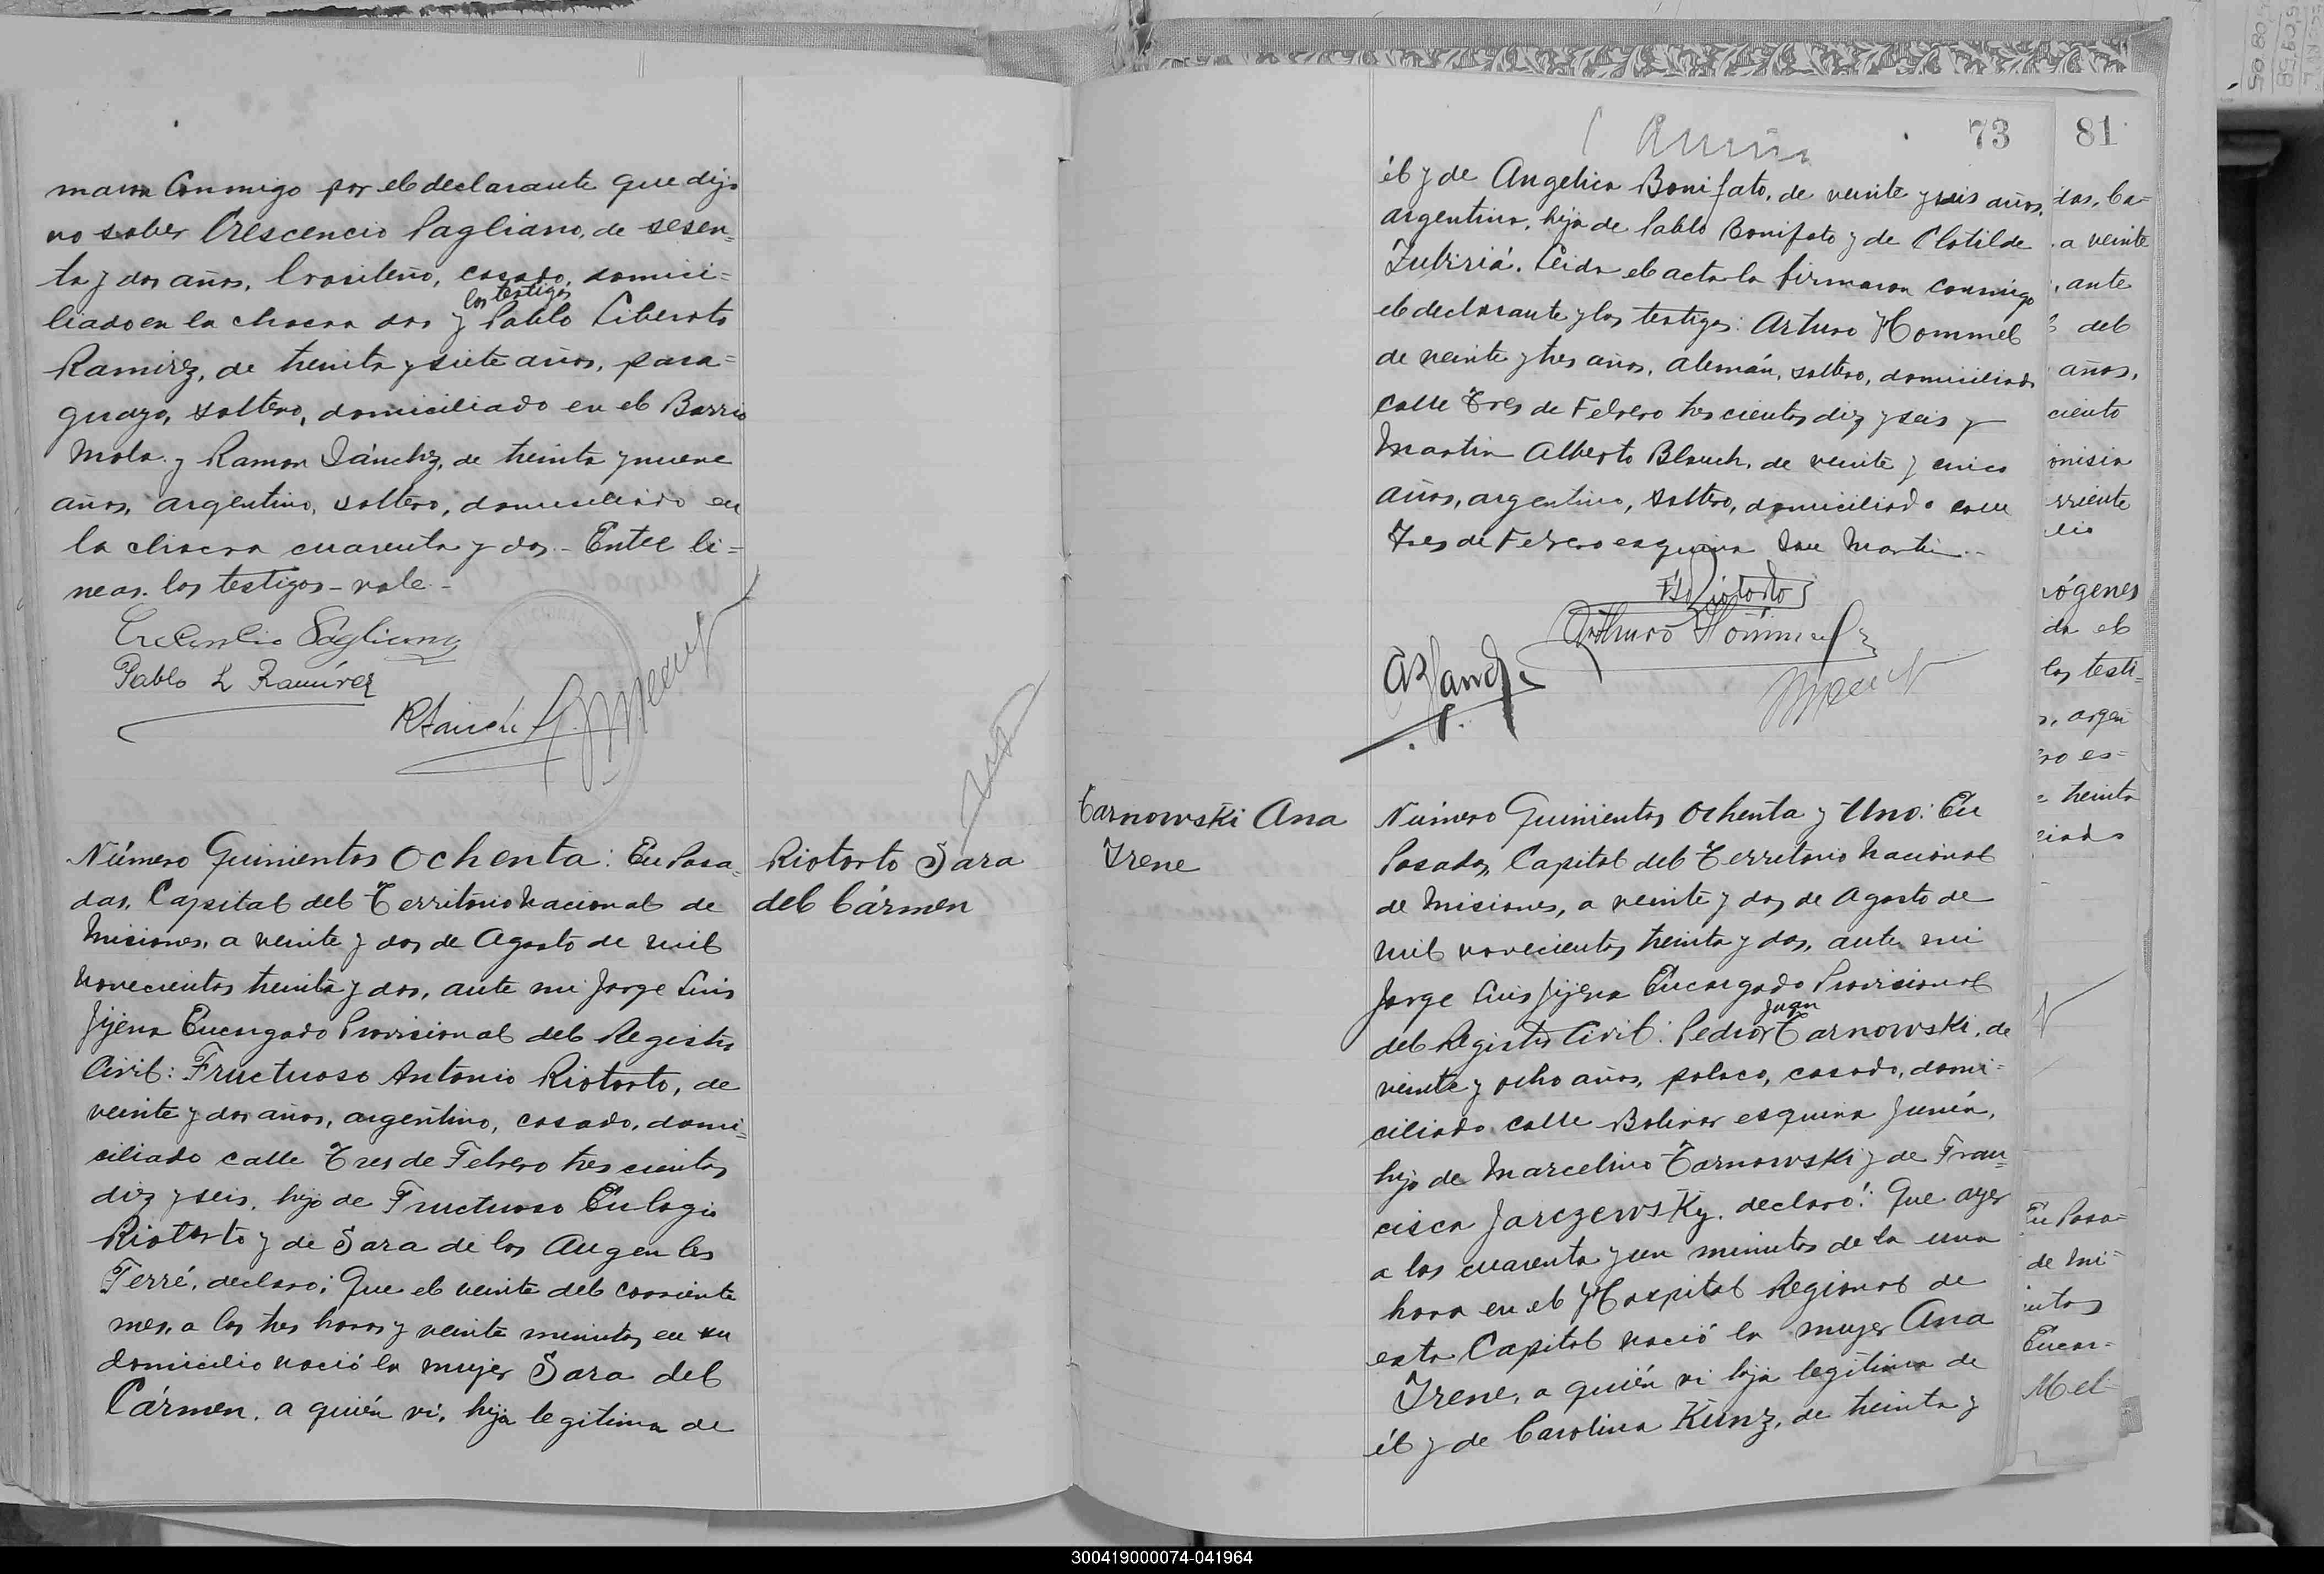 maron conmigo por el declarante que dijo
no saber Crescencio Pagliano, de sesen=
ta y dos años, brasileño, casado, domici=
los testigos
liado en la chacra dos y Pablo Liberato
Ramirez, de treinta y siete años, para=
guayo, soltero, domiciliado en el Barrio
Mola y Ramon Sánchez, de treinta y nueve
años, argentino, soltero, domiciliado en
la chacra cuarenta y dos - Entre li=
neas. los testigos - vale -
Crescencio Pagliano
Pablo L Ramírez
Número Quinientos Ochenta: En Posa=
das, Capital del Territorio Nacional de
Misiones, a veinte y dos de Agosto de mil
novecientos treinta y dos, ante mi Jorge Luis
Jijena Encargado Provisional del Registro
Civil: Fructuoso Antonio Riotorto, de
veinte y dos años, argentino, casado, domi=
ciliado calle Tres de Febrero tres cientos
diez y seis, hijo de Fructuoso Eulogio
Riotorto y de Sara de los Angeles
Terré, declaro: Que el veinte del corriente
mes, a las tres horas y veinte minutos en su
domicilio nació la mujer Sara del
Cármen, a quién vi, hija legitima de
Riotorto Sara
del Cármen
73
él y de Angelica Bonifato, de veinte y seis años,
argentina, hija de Pablo Bonifato y de Clotilde
Zubiriá. Leida el acta la firmaron conmigo
el declarante y los testigos: Arturo Hommel
de veinte y tres años, alemán, soltero, domiciliado
calle Tres de Febrero tres cientos diez y seis y
Martin Alberto Blanch, de veinte y cinco
años, argentino, soltero, domiciliado calle
Tres de Febrero esquina San Martin -
Riotorto
Arthuro Hömmel
Tarnowski Ana
Irene
Número Quinientos Ochenta y Uno: En
Posadas, Capital del Territorio Nacional
de Misiones, a veinte y dos de Agosto de
mil novecientos treinta y dos, ante mi
Jorge Luis Jijena Encargado Provisional
Juan
del Registro Civil: Pedro Tarnowski, de
veinte y ocho años, polaco, casado, domi=
ciliado calle Bolivar esquina Junín,
hijo de Marcelino Tarnowski y de Fran=
cisca Jarczewsky, declaró: Que ayer
a los cuarenta y un minutos de la una
hora en el Hospital Regional de
esta Capital nació la mujer Ana
Irene, a quién vi hija legitima de
él y de Carolina Kunz, de treinta y
81
das, Ca=
a veinte
, ante
del
años,
ciento
onisia
rriente
lio
rógenes
da el
los testi=
, argen
ro es=
treinta
ciado
En Posa=
de Mi=
entos
Encar=
Mel
300419000074-041964